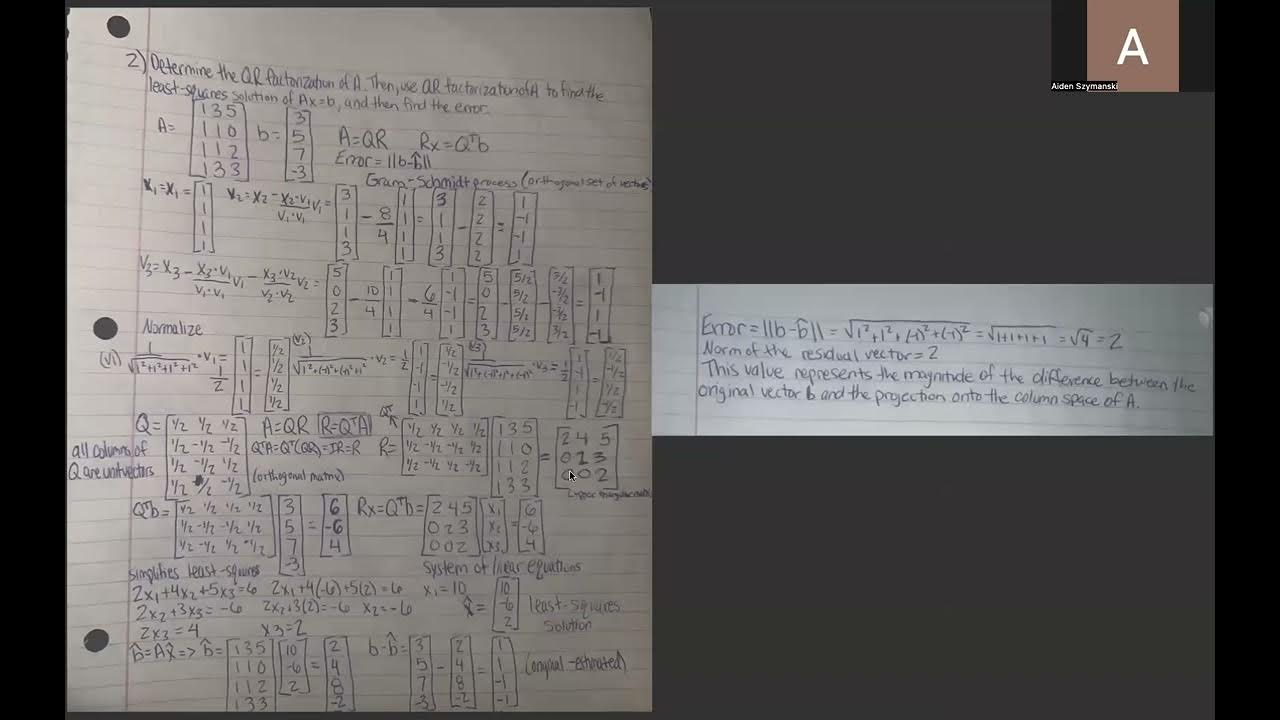 2) Determine the QR factorization of A. Then, use QR factorization of A to find the
least-squares solution of Ax=b, and then find the error.
A= [1 3 5; 1 1 0; 1 1 2; 1 3 3] b= [3; 5; 7; -3] A=QR Rx=Qᵀb
Error = ||b-b̂||
Gram-Schmidt process (orthogonal set of vectors)
V₁=X₁= [1; 1; 1; 1] V₂=X₂ - X₂·V₁/V₁·V₁ V₁ = [3; 1; 1; 3] - 8/4 [1; 1; 1; 1] = [3; 1; 1; 3] - [2; 2; 2; 2] = [1; -1; -1; 1]
V₃=X₃ - X₃·V₁/V₁·V₁ V₁ - X₃·V₂/V₂·V₂ V₂ = [5; 0; 2; 3] - 10/4 [1; 1; 1; 1] - 6/4 [1; -1; -1; 1] = [5; 0; 2; 3] - [5/2; 5/2; 5/2; 5/2] - [3/2; -3/2; -3/2; 3/2] = [1; -1; 1; -1]
Normalize
(V1) 1/√1²+1²+1²+1² · V₁ = 1/2 [1; 1; 1; 1] = [1/2; 1/2; 1/2; 1/2] (V2) 1/√1²+(-1)²+(-1)²+1² · V₂ = 1/2 [1; -1; -1; 1] = [1/2; -1/2; -1/2; 1/2] (V3) 1/√1²+(-1)²+1²+(-1)² · V₃ = 1/2 [1; -1; 1; -1] = [1/2; -1/2; 1/2; -1/2]
Q= [1/2 1/2 1/2; 1/2 -1/2 -1/2; 1/2 -1/2 1/2; 1/2 1/2 -1/2] A=QR R=QᵀA
all columns of
Q are unit vectors
QᵀA=Qᵀ(QR)=IR=R
(orthogonal matrix)
Qᵀ
R= [1/2 1/2 1/2 1/2; 1/2 -1/2 -1/2 1/2; 1/2 -1/2 1/2 -1/2] [1 3 5; 1 1 0; 1 1 2; 1 3 3] = [2 4 5; 0 2 3; 0 0 2]
Qᵀb= [1/2 1/2 1/2 1/2; 1/2 -1/2 -1/2 1/2; 1/2 -1/2 1/2 -1/2] [3; 5; 7; -3] = [6; -6; 4] Rx=Qᵀb= [2 4 5; 0 2 3; 0 0 2] [x₁; x₂; x₃] = [6; -6; 4]
simplifies least-squares system of linear equations
2x₁+4x₂+5x₃=6 2x₁+4(-6)+5(2)=6 x₁=10
2x₂+3x₃=-6 2x₂+3(2)=-6 x₂=-6
2x₃=4 x₃=2
x̂= [10; -6; 2] least-squares
solution
b̂=Ax̂=> b̂= [1 3 5; 1 1 0; 1 1 2; 1 3 3] [10; -6; 2] = [2; 4; 8; -2] b-b̂= [3; 5; 7; -3] - [2; 4; 8; -2] = [1; 1; -1; -1] (original-estimated)
A
Aiden Szymanski
Error=||b-b̂|| = √1²+1²+(-1)²+(-1)² = √1+1+1+1 = √4 = 2
Norm of the residual vector=2
This value represents the magnitude of the difference between the
original vector b and the projection onto the column space of A.